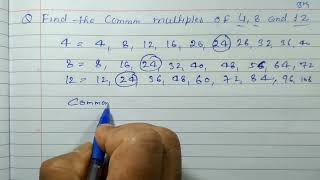 3K
Q Find the Common multiples of 4, 8 and 12
4 = 4, 8, 12, 16, 20, 24, 28, 32, 36, 40
8 = 8, 16, 24, 32, 40, 48, 56, 64, 72
12 = 12, 24, 36, 48, 60, 72, 84, 96, 108
Common